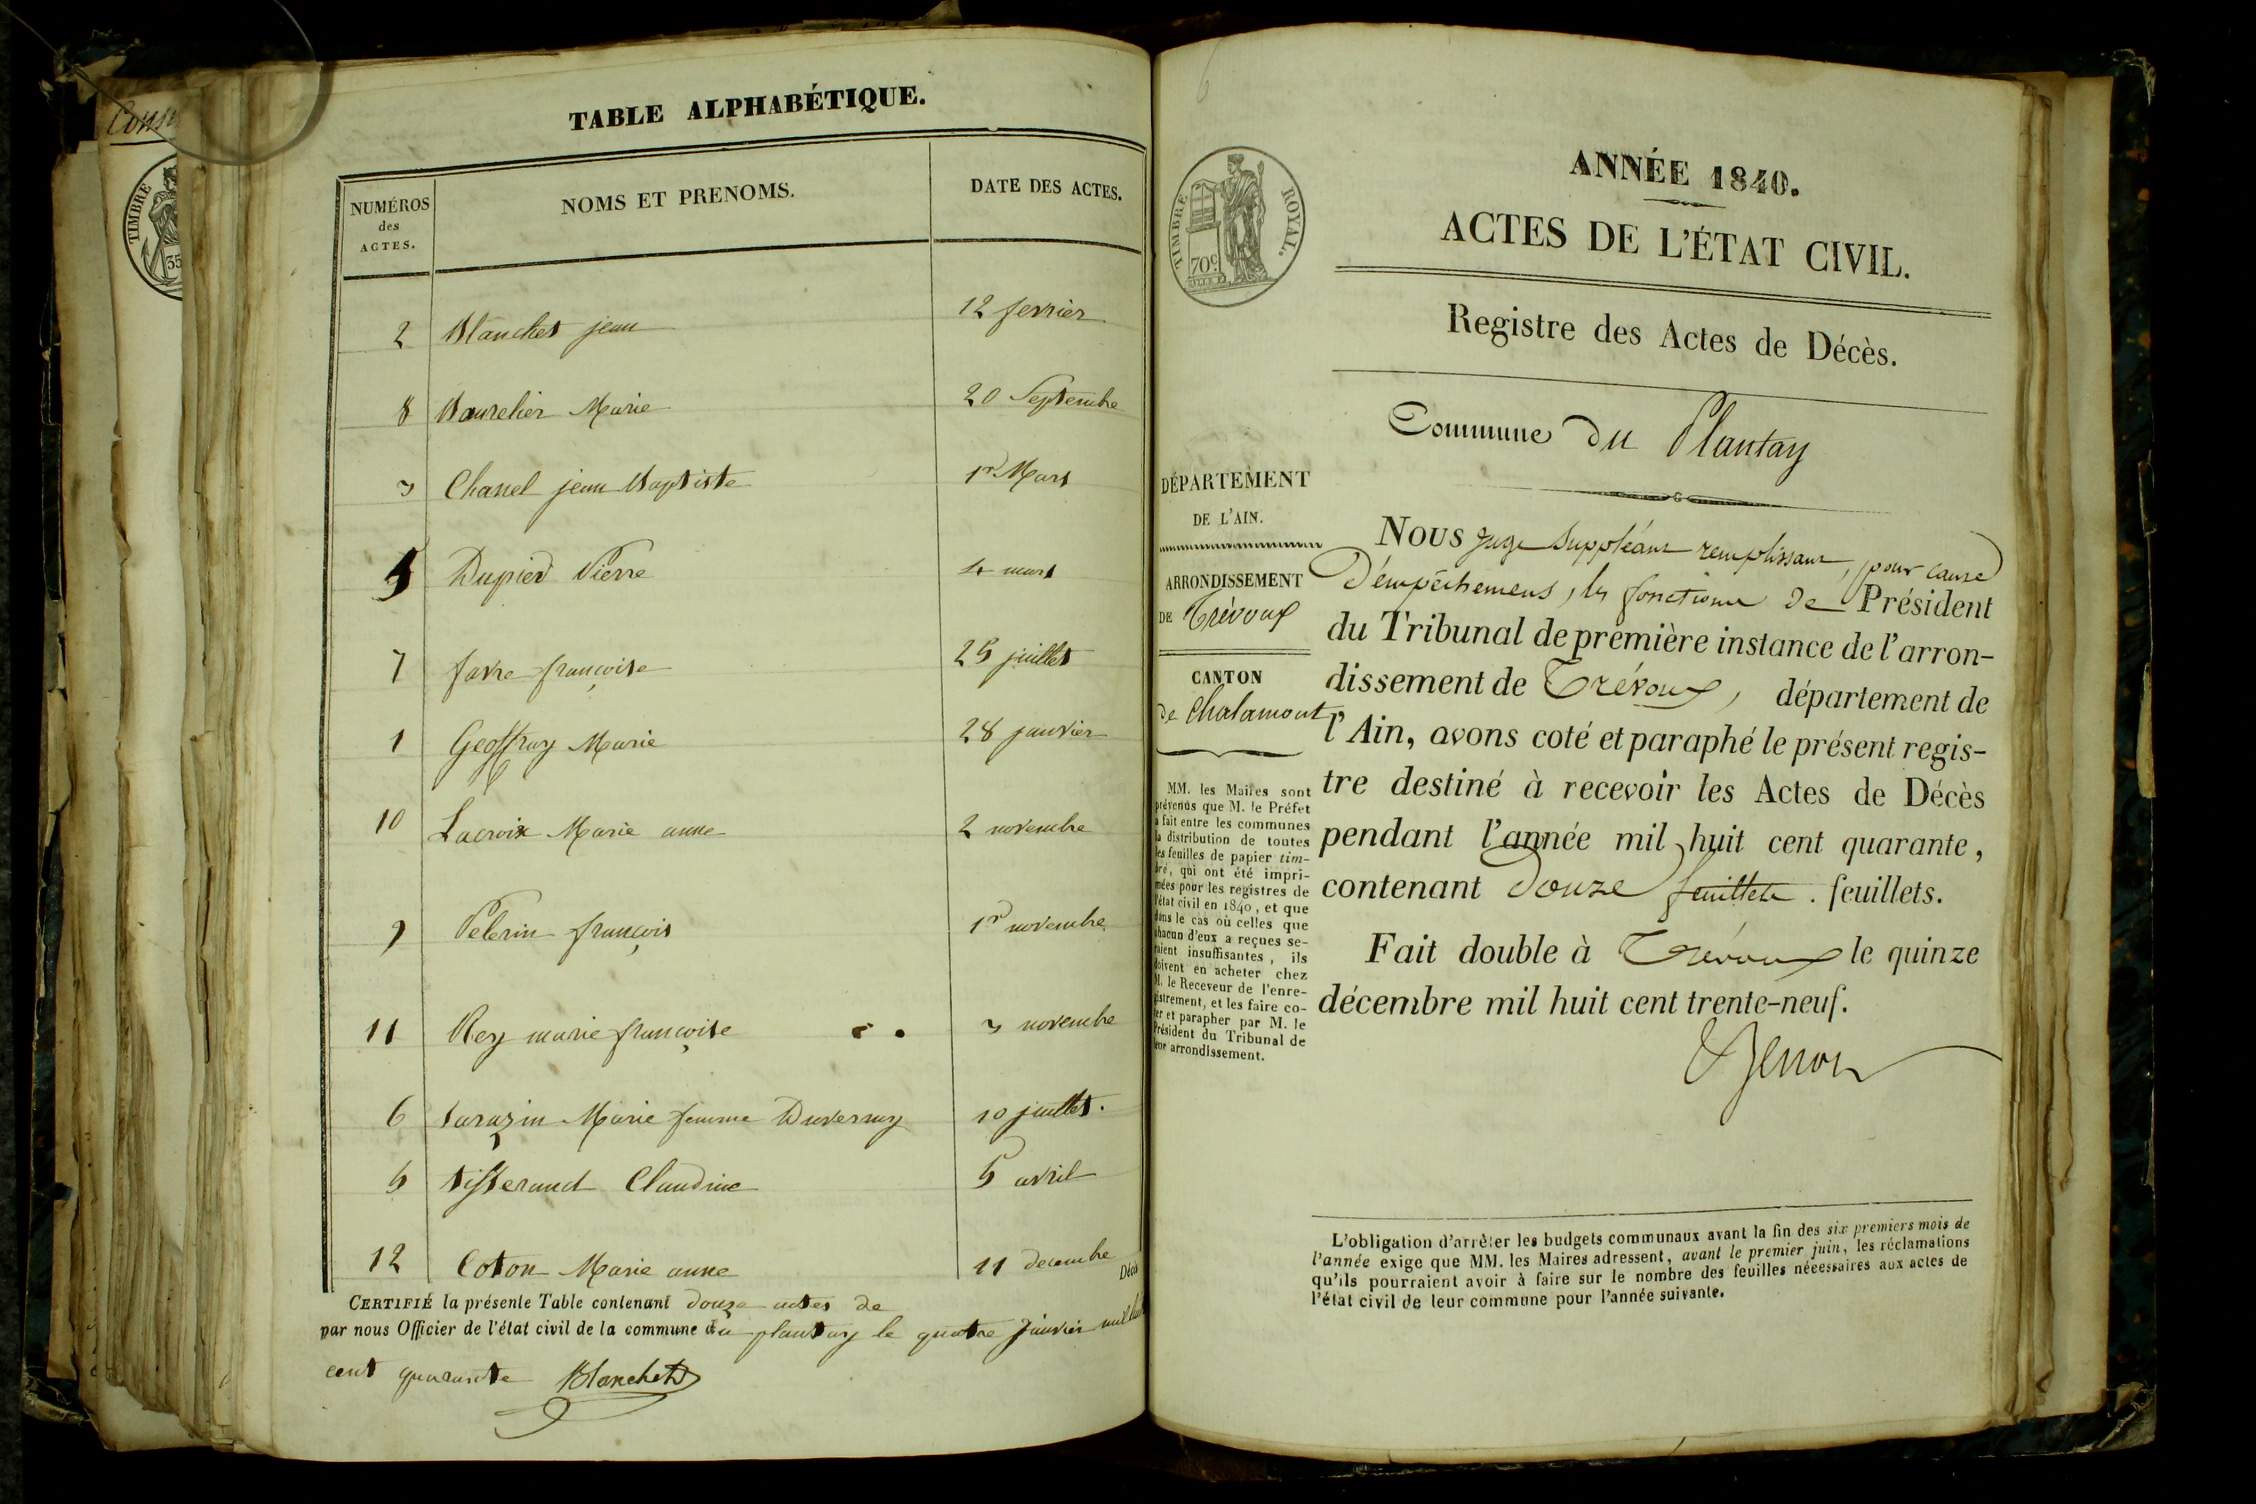 Cons
TIMBRE
35
TABLE ALPHABÉTIQUE.
NUMÉROS des ACTES. NOMS ET PRENOMS. DATE DES ACTES.
2 Blanchet jean 12 fevrier
8 Bourelier Marie 20 Septembre
3 Chanel jean Baptiste 1er Mars
4 Dupied Pierre 4 mars
7 favre françoise 25 juillet
1 Geoffray Marie 28 janvier
10 Lacroix Marie anne 2 novembre
9 Pelerin françois 1er novembre
11 Rey marie françoise 3 novembre
6 Sarazin Marie femme Duvernay 10 juillet.
5 tisserand Claudine 5 avril
12 Coton Marie anne 11 decembre
CERTIFIÉ la présente Table contenant douze actes de Décès
par nous Officier de l'état civil de la commune du plantay le quatre Janvier mil huit
cent quarante Blanchet
TIMBRE ROYAL.
70c
ANNÉE 1840.
ACTES DE L'ÉTAT CIVIL.
Registre des Actes de Décès.
Commune du Plantay
DÉPARTEMENT
DE L'AIN.
ARRONDISSEMENT
DE Trévoux
CANTON
de Chalamont
MM. les Maires sont
prévenus que M. le Préfet
a fait entre les communes
la distribution de toutes
les feuilles de papier tim-
bré, qui ont été impri-
mées pour les registres de
l'état civil en 1840, et que
dans le cas où celles que
chacun d'eux a reçues se-
raient insuffisantes, ils
doivent en acheter chez
M. le Receveur de l'enre-
gistrement, et les faire co-
ter et parapher par M. le
Président du Tribunal de
leur arrondissement.
NOUS Juge Suppléant remplissant, pour cause
d'empêchemens, les fonctions de Président
du Tribunal de première instance de l'arron-
dissement de Trévoux, département de
l'Ain, avons coté et paraphé le présent regis-
tre destiné à recevoir les Actes de Décès
pendant l'année mil huit cent quarante,
contenant Douze feuillets. feuillets.
Fait double à Trévoux le quinze
décembre mil huit cent trente-neuf.
L'obligation d'arrêter les budgets communaux avant la fin des six premiers mois de
l'année exige que MM. les Maires adressent, avant le premier juin, les réclamations
qu'ils pourraient avoir à faire sur le nombre des feuilles nécessaires aux actes de
l'état civil de leur commune pour l'année suivante.